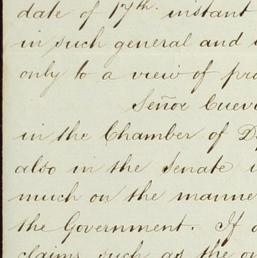 date of 17th. instant
in such general and
only to a view of pro
Señor Cuev
in the Chamber of De
also in the Senate i
much on the manne
the Government. If a
claims such as the ow